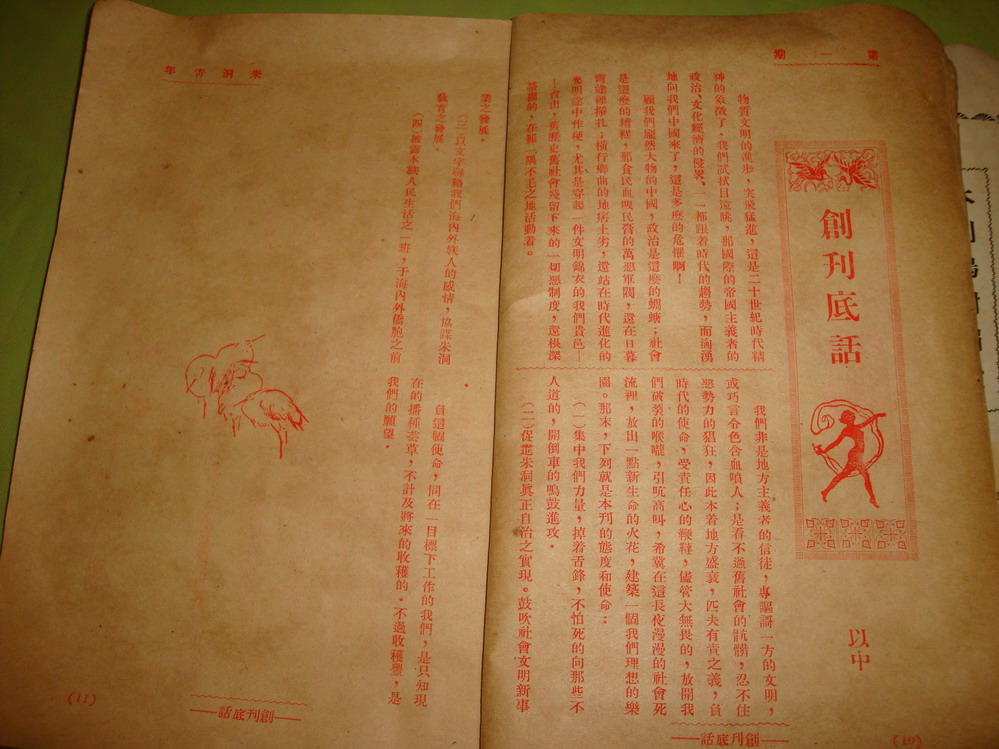 第一期
創刊底話
以中
物質文明的進步，突飛猛進，這是二十世紀時代精
神的象徵了。我們試拭目遠眺，那國際的帝國主義者的
政治、文化經濟的侵畧、一一都跟着時代的趨勢，而洶湧
地向我們中國來了，這是多麽的危懼啊！
顧我們龐然大物的中國，政治是這麽的蜩螗；社會
是這麽的糟糕，那食民血吸民膏的萬惡軍閥，還在日暮
窮途裡掙扎；橫行鄉曲的地痞土劣，還站在時代進化的
光明途中作梗，尤其是穿起一件文明錦衣的我們貴邑—
—台山，舊歷史舊社會殘留下來的一切惡制度，還根深
蒂固的，在那一隅不毛之地活動着。
我們非是地方主義者的信徒，專謳哥一方的文明，
或巧言令色含血噴人；是看不過舊社會的骯髒，忍不住
惡勢力的猖狂，因此本着地方盛衰，匹夫有責之義，負
時代的使命，受責任心的鞭韃，儘管大無畏的，放開我
們破裂的喉嚨，引吭高叫，希冀在這長夜漫漫的社會死
流裡，放出一點新生命的火花，建築一個我們理想的樂
園。那末，下列就是本刊的態度和使命：
（一）集中我們力量，掉着舌鋒，不怕死的向那些不
人道的，開倒車的鳴鼓進攻。
（二）促進朱洞眞正自治之實現。鼓吹社會文明新事
創刊底話
(10)
朱洞青年
業之發展。
（三）以文字聯絡我們海內外族人的感情，協謀朱洞
敎育之發展。
（四）披露本族人民生活之一班，于海內外僑胞之前
。
負這個使命，同在一目標下工作的我們，是只知現
在的播種芸草，不計及將來的收穫的。不過收穫豐，是
我們的願望。
創刊底話
(11)